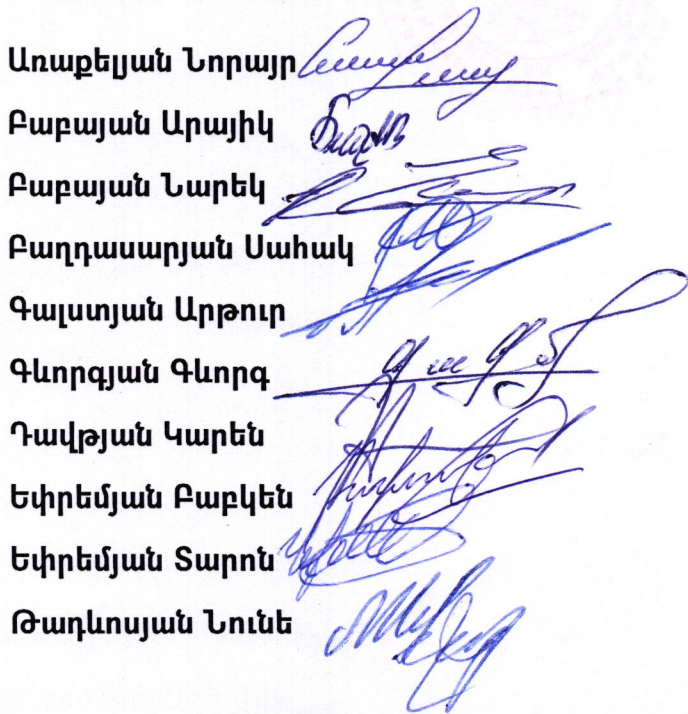 Առաքելյան Նորայր
Բաբայան Արայիկ
Բաբայան Նարեկ
Բաղդասարյան Սահակ
Գալստյան Արթուր
Գևորգյան Գևորգ
Դավթյան Կարեն
Եփրեմյան Բաբկեն
Եփրեմյան Տարոն
Թադևոսյան Նունե